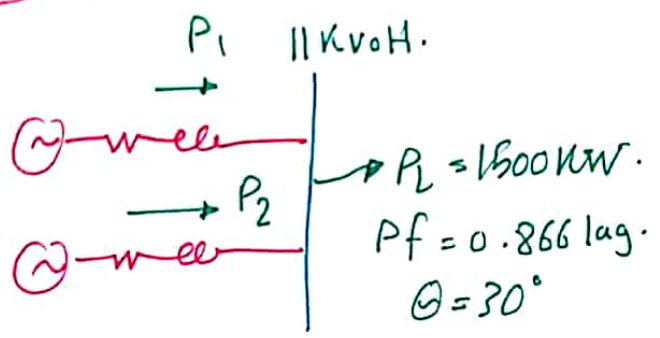 P₁ 11 KvoH.
P₂
P_L = 1500 KW.
Pf = 0.866 lag.
Θ = 30°